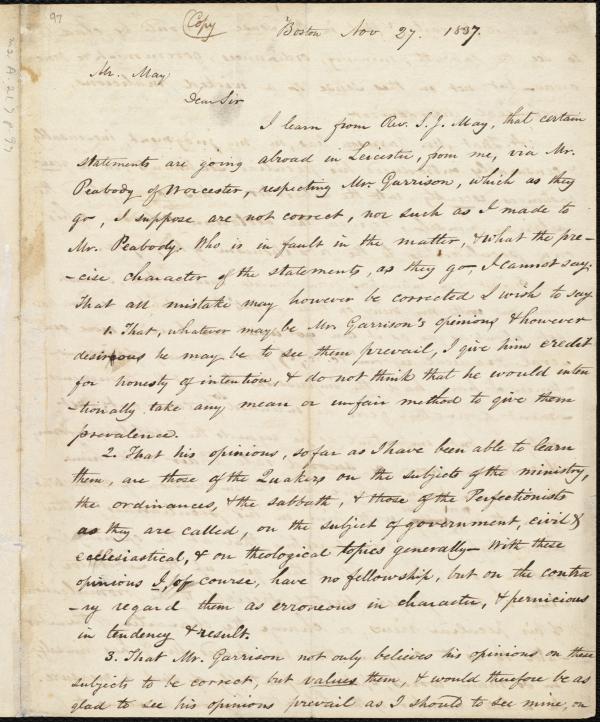 97
(Copy)
Boston Nov. 27. 1837.
Ms. A. 21 7 p 97
Mr. May
Dear Sir
I learn from Rev. S. J. May, that certain
statements are going abroad in Leicester, from me, via Mr.
Peabody of Worcester, respecting Mr. Garrison, which as they
go, I suppose are not correct, nor such as I made to
Mr. Peabody. Who is in fault in the matter, & what the pre-
-cise character of the statements, as they go, I cannot say.
That all mistake may however be corrected I wish to say
1. That, whatever may be Mr. Garrison's opinions & however
desirous he may be to see them prevail, I give him credit
for honesty of intention, & do not think that he would inten
-tionally take any mean or unfair method to give them
prevalence.
2. That his opinions, so far as I have been able to learn
them, are those of the Quakers on the subjects of the ministry,
the ordinances, & the sabbath, & those of the Perfectionists
as they are called, on the subject of government, civil &
ecclesiastical, & on theological topics generally – With these
opinions I, of course, have no fellowship, but on the contra
-ry regard them as erroneous in character, & pernicious
in tendency & result.
3. That Mr. Garrison not only believes his opinions on these
subjects to be correct, but values them, & would therefore be as
glad to see his opinions prevail as I should to see mine, on